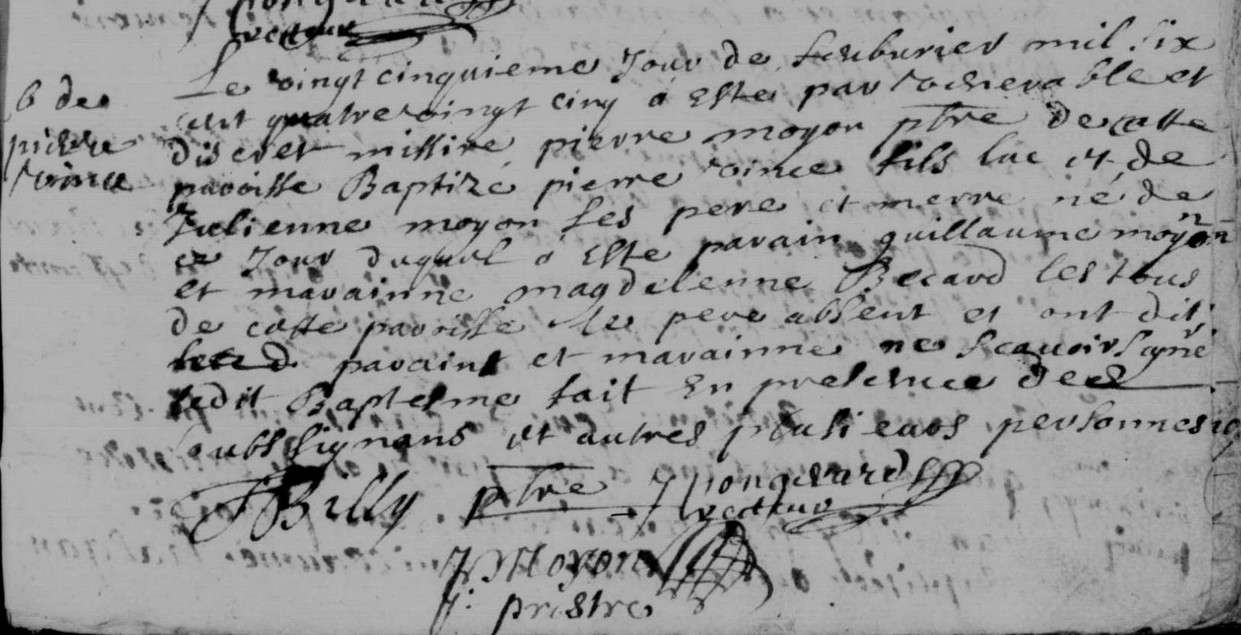 recteur
Le vingt cinquieme Jour de feuburier mil six
cent quatre vingt cinq a Este par venerable et
b de
discret missire pierre moyon ptre de cette
pierre
paroisse Baptizé pierre vince fils luc et de
vince
Julienne moyon ses pere et merre né de
ce Jour duquel a Este parain guillaume moyon
et marainne magdelenne Becard les tous
de cette paroisse le pere absent et ont dit
parain et marainne ne scauoir signé
ledit Baptesme fait En presence des
soubssignans et autres plusieurs personnes
Billy ptre
recteur
p Moyon
pristre